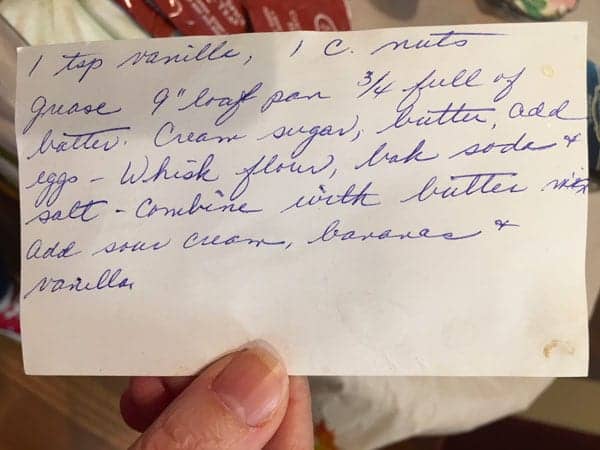 1 tsp vanilla, 1 C. nuts
grease 9" loaf pan 3/4 full of
batter. Cream sugar, butter, add
eggs - Whisk flour, bak soda +
salt - Combine with butter mix
add sour cream, bananas +
vanilla.